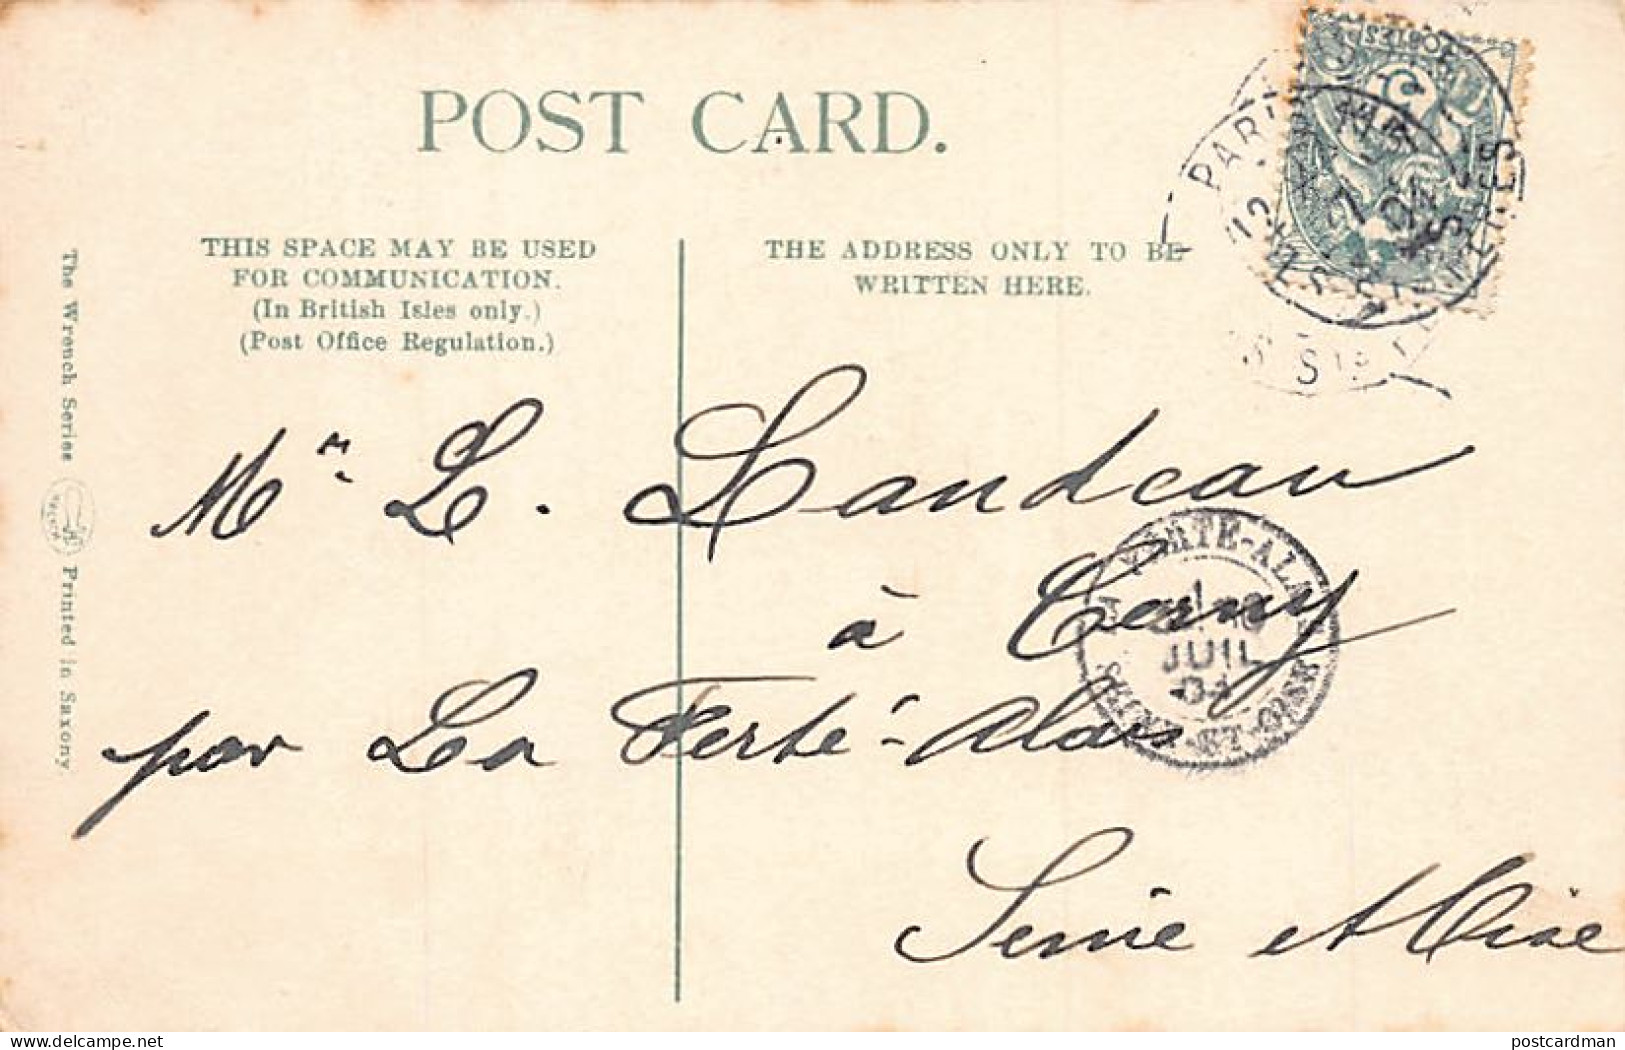 POST CARD.
THIS SPACE MAY BE USED
FOR COMMUNICATION.
(In British Isles only.)
(Post Office Regulation.)
THE ADDRESS ONLY TO BE
WRITTEN HERE.
The Wrench Series
Printed in Saxony
POSTES
5
PARIS
04
Mr. L. Landeau
à Cerny
par La Ferté-Alais
Seine et Oise
FERTÉ-ALAIS
JUIL
04
SEINE-ET-OISE
delcampe.net
postcardman